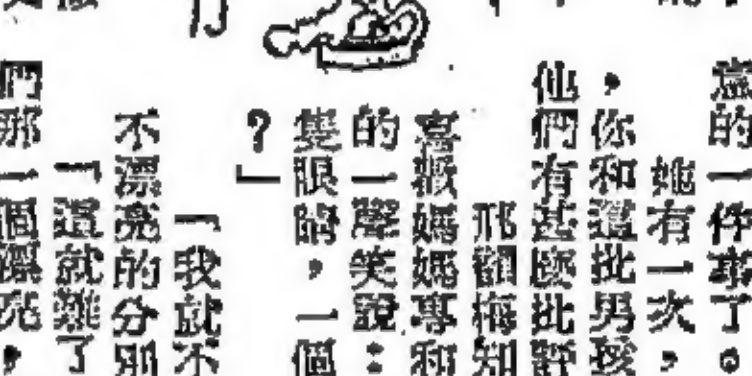 的一件事了。
她有一次,
,你和這批男孩
他們有甚麼批評
梅知
媽媽專和
的一聲笑說:
隻眼睛,一個
?」
「我就不
不漂亮的分別
「這就難了
們那一個漂亮,